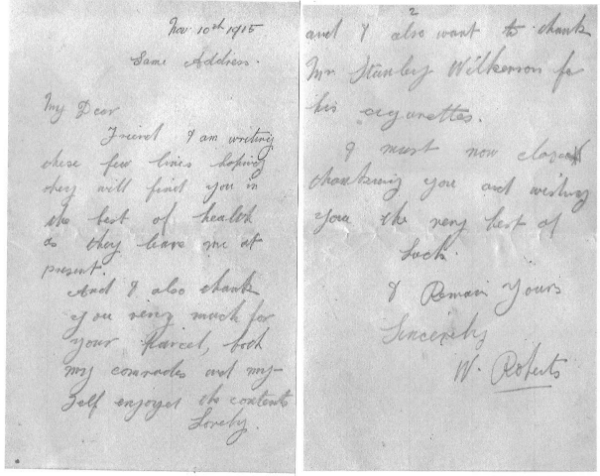 Nov 10th 1915
Same Address.
My Dear
Friend I am writing
these few lines hoping
they will find you in
the best of health
as they leave me at
present.
And I also thank
you very much for
your Parcel, both
my comrades and my-
self enjoyed the contents
Lovely.
2
and I also want to thank
Mr Stanley Wilkerson for
his cigarettes.
I must now close
thanking you and wishing
you the very best of
Luck.
I Remain Yours
Sincerely
W. Roberts